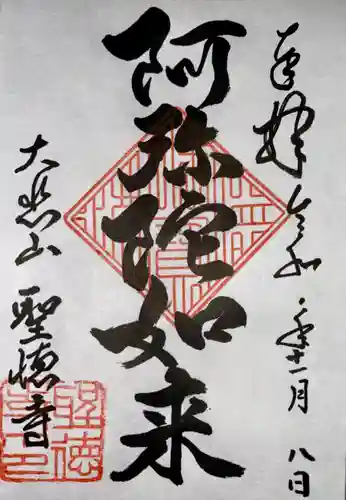 奉拝 令和 年十一月 八日
阿弥陀如来
大悲山 聖徳寺